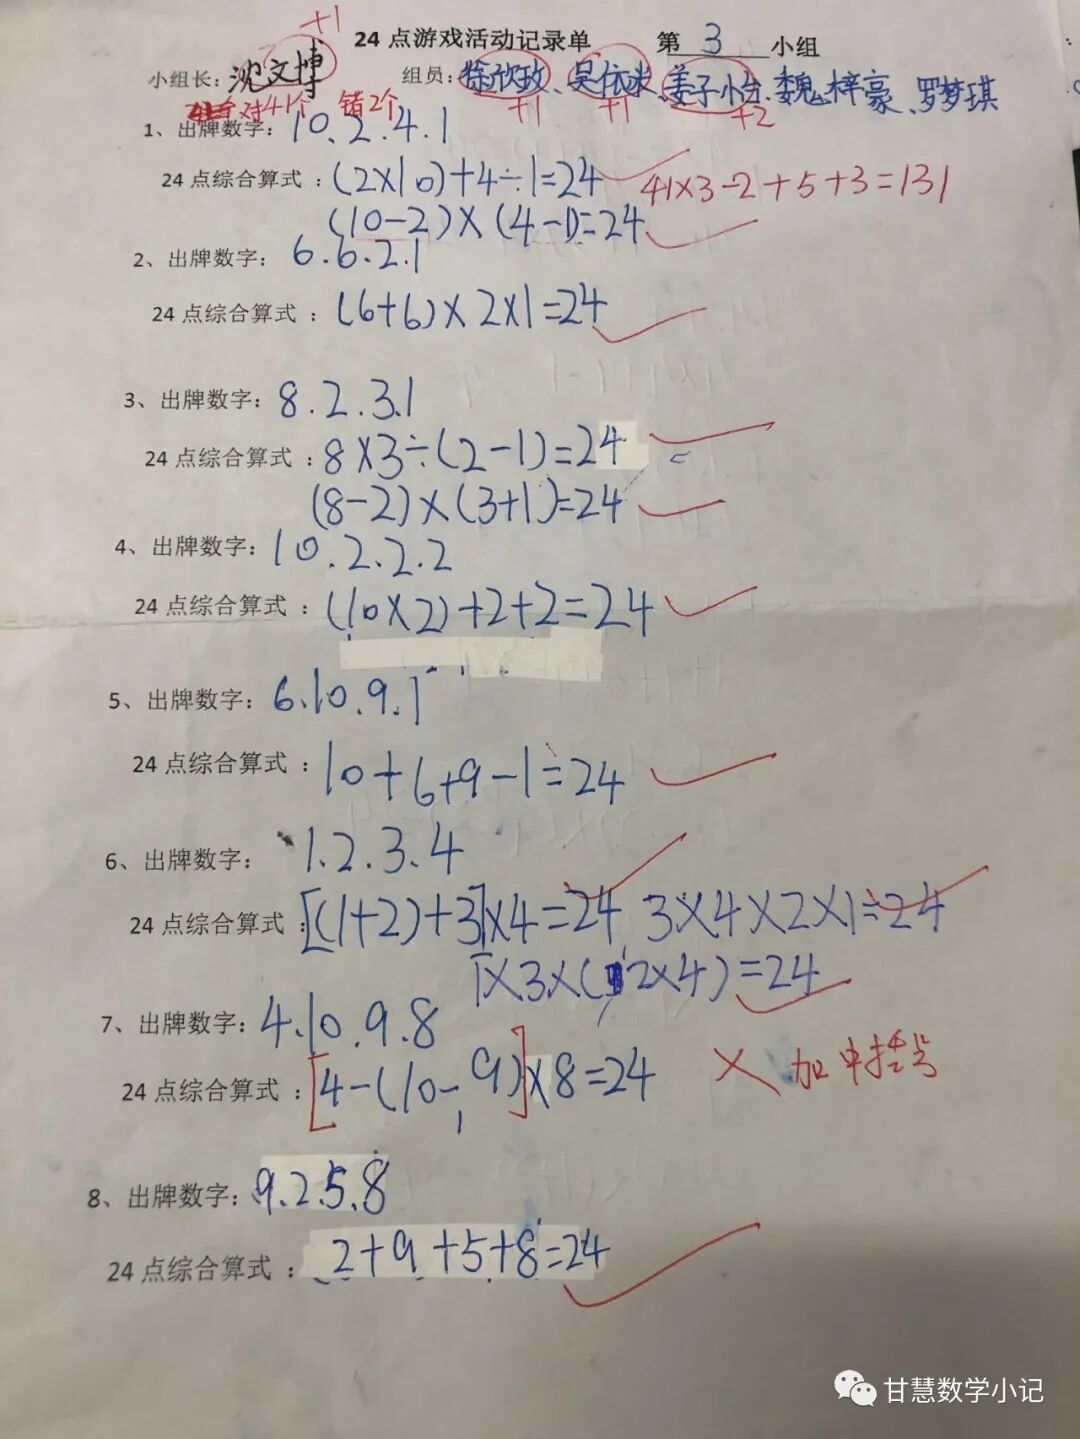 +1
24 点游戏活动记录单 第 3 小组
小组长：沈文博 组员：徐欣玫、吴依米、姜子小台、魏梓豪、罗梦琪
+1 +1 +2
对41个 错2个
1、出牌数字：10.2.4.1
24 点综合算式 ：(2×10)+4÷1=24
41×3-2+5+3=131
(10-2)×(4-1)=24
2、出牌数字：6.6.2.1
24 点综合算式 ：(6+6)×2×1=24
3、出牌数字：8.2.3.1
24 点综合算式 ：8×3÷(2-1)=24
(8-2)×(3+1)=24
4、出牌数字：10.2.2.2
24 点综合算式 ：(10×2)+2+2=24
5、出牌数字：6.10.9.1
24 点综合算式 ：10+6+9-1=24
6、出牌数字： 1.2.3.4
24 点综合算式 ：[(1+2)+3]×4=24 3×4×2×1=24
1×3×(2×4)=24
7、出牌数字：4.10.9.8
24 点综合算式 ：[4-(10-9)]×8=24 × 加中括号
8、出牌数字：9.2.5.8
24 点综合算式 ：2+9+5+8=24
甘慧数学小记